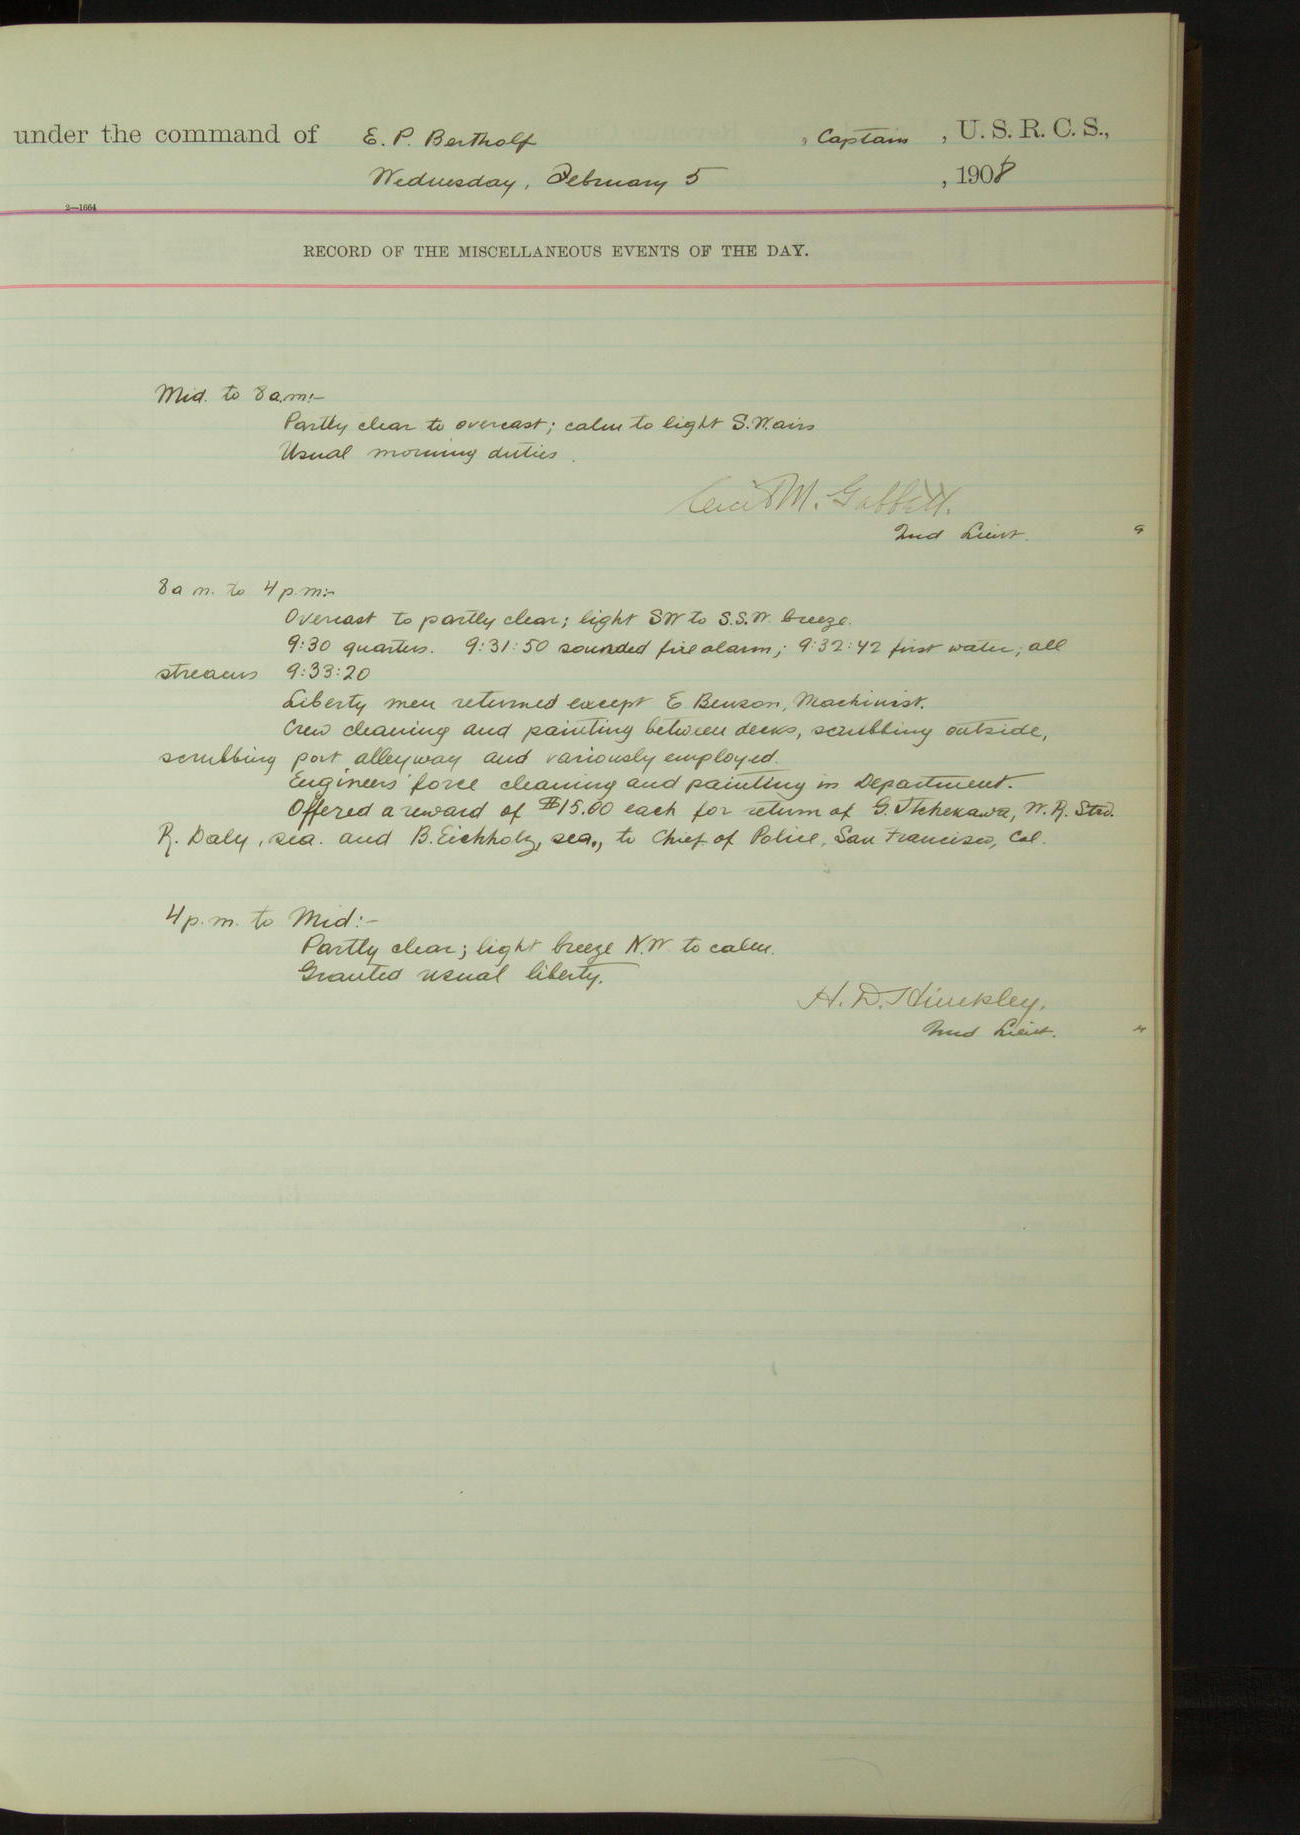 under the command of E. P. Bertholf , Captain , U. S. R. C. S.,
Wednesday, February 5 , 1908
2—1664
RECORD OF THE MISCELLANEOUS EVENTS OF THE DAY.
Mid. to 8 a.m:—
Partly clear to overcast; calm to light S.W. airs
Usual morning duties.
M. Gabbett.
2nd Lieut.
8 a m. to 4 p.m:—
Overcast to partly clear; light SW to S.S.W. breeze.
9:30 quarters. 9:31:50 sounded fire alarm; 9:32:42 first water; all
streams 9:33:20
Liberty men returned except E. Benson, Machinist.
Crew cleaning and painting between decks, scrubbing outside,
scrubbing port alleyway and variously employed.
Engineers' force cleaning and painting in Department.
Offered a reward of $15.00 each for return of G. Itchekawa, W. R. Std.
R. Daly, sea. and B. Eichholz, sea., to Chief of Police, San Francisco, Cal.
4 p.m. to Mid:—
Partly clear; light breeze N.W. to calm.
Granted usual liberty.
H. D. Hinckley.
2nd Lieut.